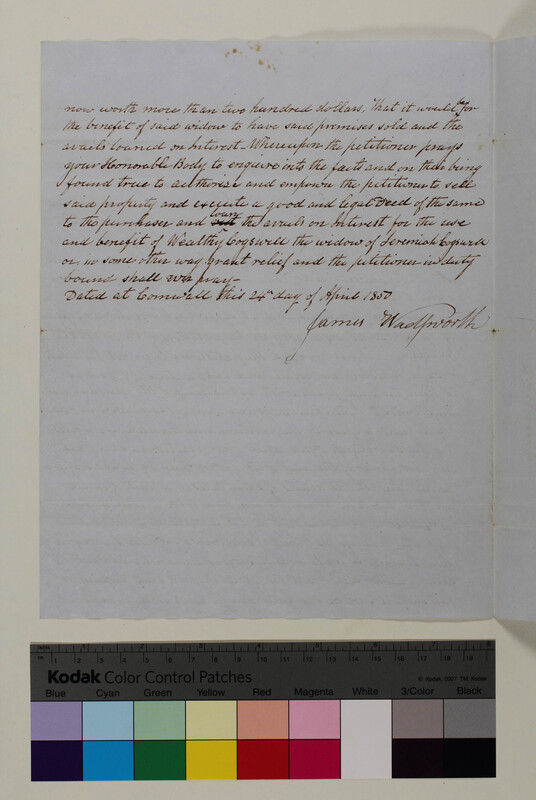 now worth more than two hundred dollars, That it would be for
the benefit of said widow to have said premises sold and the
avails loaned on Interest. Whereupon the petitioner prays
your Honorable Body to enquire into the facts and on their being
found true to authorise and empower the petitioner to sell
said property and execute a good and legal Deed of the same
to the purchaser and loan the avails on Interest for the use
and benefit of Wealthy Cogswell the widow of Jeremiah Cogswell
or in some other way grant relief and the petitioner in duty
bound shall ever pray—
Dated at Cornwall this 24th day of April 1850
James Wadsworth
1 2 3 4 5 6 7 8
1 2 3 4 5 6 7 8 9 10 11 12 13 14 15 16 17 18 19
Kodak Color Control Patches
© Kodak, 2007 TM: Kodak
Blue Cyan Green Yellow Red Magenta White 3/Color Black